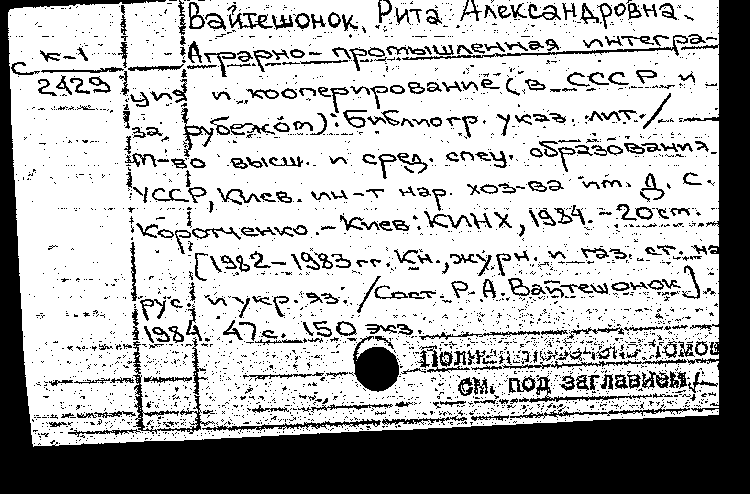 Вайтешонок, Рита Александровна.
К-1
С 2429
Аграрно-промышленная интегра-
ция и кооперирование (в СССР и
за рубежом): Библиогр. указ. лит. /
М-во высш. и сред. спец. образования
УССР, Киев. ин-т нар. хоз-ва им. Д. С.
Коротченко. - Киев: КИНХ, 1984. - 20 см.
[1982-1983 гг. Кн., журн. и газ. ст. на
рус. и укр. яз. / Сост. Р. А. Вайтешонок].
1984. 47 с. 150 экз.
томов
см. под заглавием